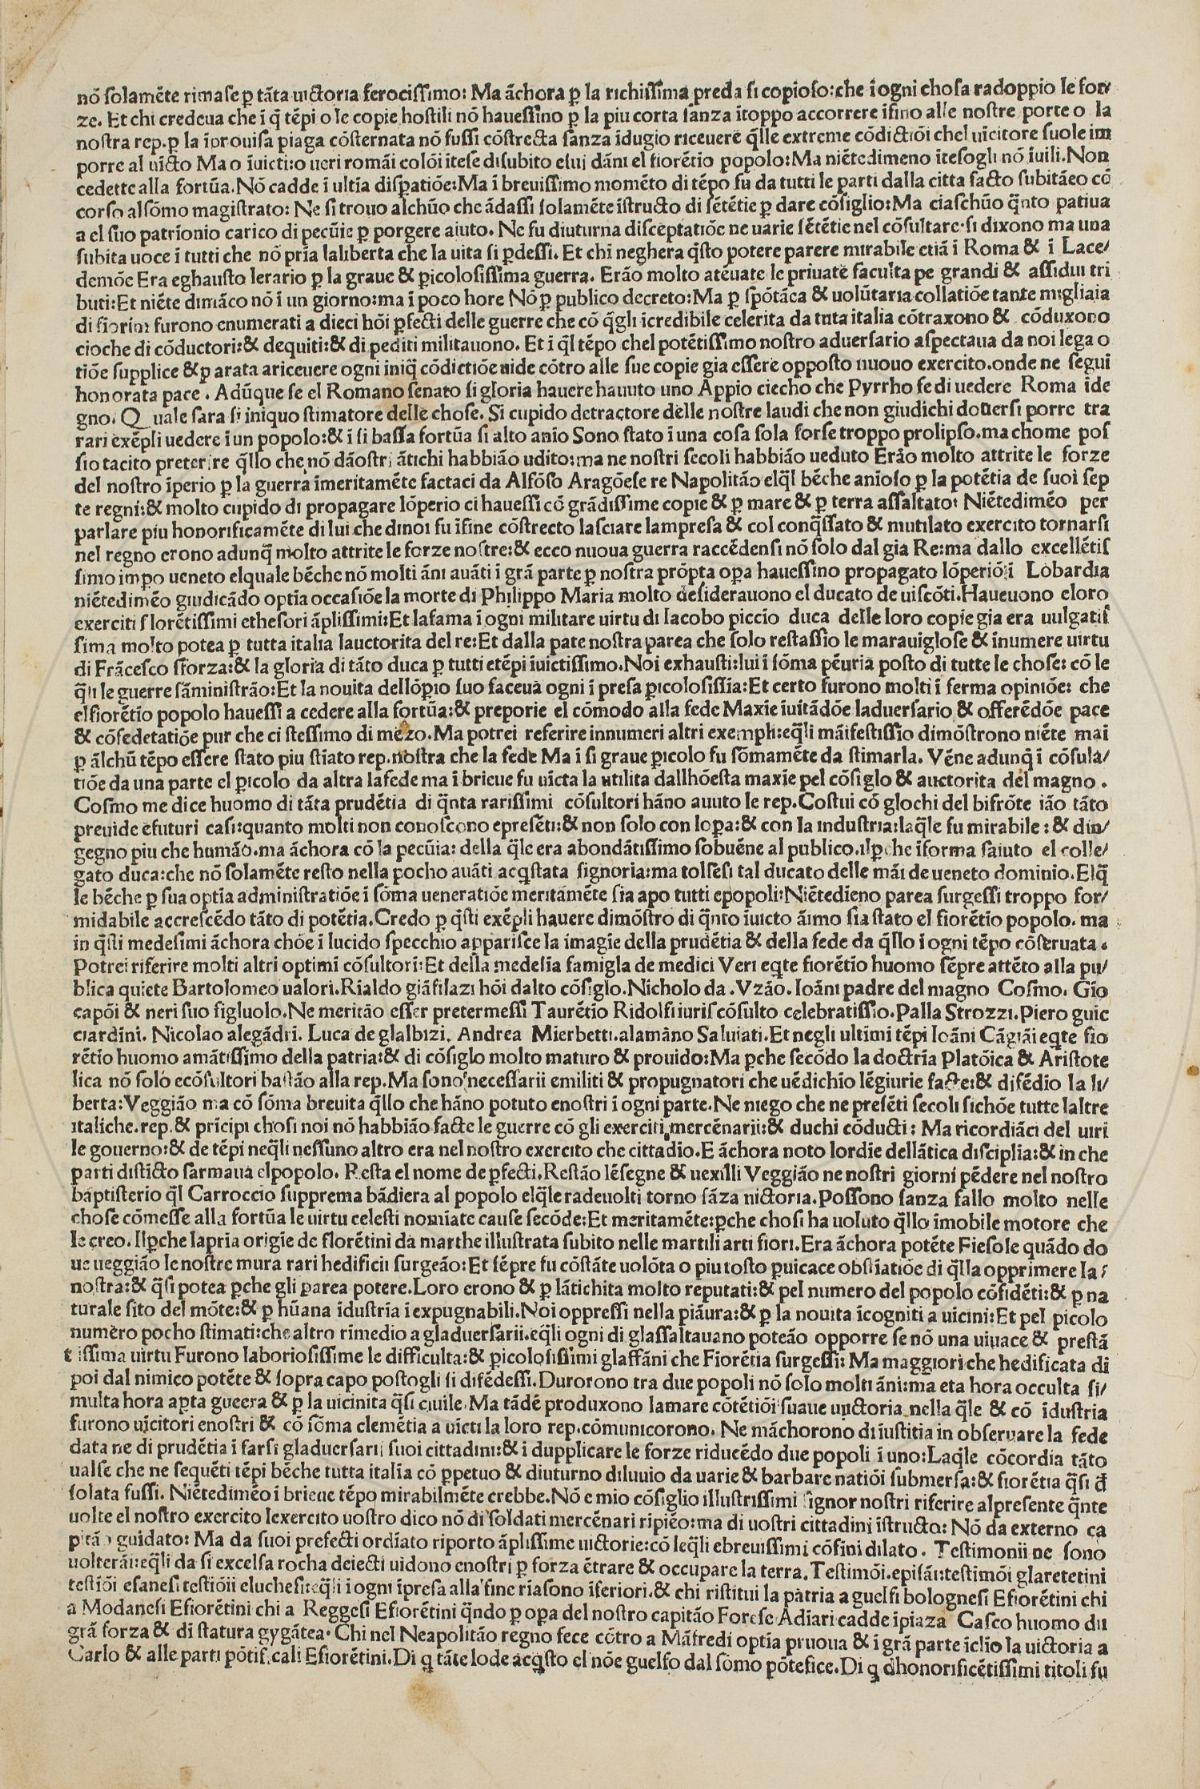 nõ solamẽte rimase ꝑ tãta uictoria ferocissimo: Ma ãchora ꝑ la richissima preda si copioso: che ĩ ogni chosa radoppio le for/
ze. Et chi credeua che ĩ q̃ tẽpi o le copie hostili nõ hauessino ꝑ la piu corta sanza ĩtoppo accorrere ĩfino alle nostre porte o la
nostra rep. ꝑ la ĩprouisa piaga cõsternata nõ fussi cõstrecta sanza ĩdugio riceuere q̃lle extreme cõdictiõi chel uĩcitore suole im
porre al uĩcto Ma o ĩuicti: o ueri romãi colõi ĩtese disubito elui dãni el fiorẽtio popolo: Ma niẽtedimeno ĩtesogli nõ ĩuili. Non
cedette alla fortũa. Nõ cadde ĩ ultĩa disꝑatiõe: Ma ĩ breuissimo momẽto di tẽpo fu da tutti le parti dalla citta facto subitãeo cõ
corso al sõmo magistrato: Ne si trouo alchũo che ãdassi solamẽte ĩstructo di sẽtẽtie ꝑ dare cõsiglio: Ma ciaschũo q̃nto patiua
a el suo patrĩonio carico di pecũie ꝑ porgere aiuto. Ne fu diuturna disceptatiõe ne uarie sẽtẽtie nel cõsultare. si dixono ma una
subita uoce ĩ tutti che nõ prĩa la liberta che la uita si ꝑdessi. Et chi neghera q̃sto potere parere mirabile etiã ĩ Roma & ĩ Lace/
demõe Era eghausto lerario ꝑ la graue & ꝑicolosissima guerra. Erão molto atẽuate le priuate faculta pe grandi & assidui tri
buti: Et niẽte dimãco nõ ĩ un giorno: ma ĩ poco hore Nõ ꝑ publico decreto: Ma ꝑ spõtãca & uolũtaria collatiõe tante migliaia
di fiorini furono enumerati a dieci hõi ꝑfecti delle guerre che cõ q̃gli ĩcredibile celerita da tuta italia cõtraxono & cõduxono
cioche di cõductori: & dequiti: & di pediti militauono. Et ĩ q̃l tẽpo chel potẽtissimo nostro aduersario aspectaua da noi lega o
tiõe supplice & ꝑ arata ariceuere ogni iniq̃ cõdictiõe uide cõtro alle sue copie gia essere opposto nuouo exercito. onde ne segui
honorata pace. Adũque se el Romano senato si gloria hauere hauuto uno Appio ciecho che Pyrrho fe di uedere Roma ĩde
gno. Quale sara si iniquo stimatore delle chose. Si cupido detractore delle nostre laudi che non giudichi douersi porre tra
rari exẽpli uedere ĩ un popolo: & ĩ si bassa fortũa si alto anĩo Sono stato ĩ una cosa sola forse troppo prolipso. ma chome pos
sio tacito preterire q̃llo che nõ dãostri ãtichi habbião udito: ma ne nostri secoli habbião ueduto Erão molto attrite le forze
del nostro ĩperio ꝑ la guerra ĩmeritamẽte factaci da Alfõso Aragõese re Napolitão elq̃l bẽche anĩoso ꝑ la potẽtia de suoi sep
te regni: & molto cupido di propagare lõperio ci hauessi cõ grãdissime copie & ꝑ mare & ꝑ terra assaltato: Niẽtedimẽo per
parlare piu honorificamẽte di lui che dinoi fu ĩfine cõstrecto lasciare lampresa & col conq̃ssato & mutilato exercito tornarsi
nel regno erono adunq̃ molto attrite le forze nostre: & ecco nuoua guerra raccẽdensi nõ solo dal gia Re: ma dallo excellẽtis
simo impo ueneto elquale bẽche nõ molti ãni auãti ĩ grã parte ꝑ nostra prõpta oꝑa hauessino propagato lõperio ĩ Lobardia
niẽtedimẽo giudicãdo optĩa occasiõe la morte di Philippo Maria molto desiderauono el ducato de uiscõti. Haueuono eloro
exerciti florẽtissimi ethesori ãplissimi: Et la fama ĩ ogni militare uirtu di Iacobo piccio duca delle loro copie gia era uulgatis
sima molto potea ꝑ tutta italia lauctorita del re: Et dalla pate nostra parea che solo restassio le marauiglose & ĩnumere uirtu
di Frãcesco sforza: & la gloria di tãto duca ꝑ tutti etẽpi ĩuictissimo. Noi exhausti: lui ĩ sõma pẽuria posto di tutte le chose: cõ le
q̃li le guerre sãministrão: Et la nouita dellõꝑio suo faceua ogni ĩ presa ꝑicolosissĩa: Et certo furono molti ĩ ferma opiniõe: che
elfiorẽtio popolo hauessi a cedere alla fortũa: & preporie el cõmodo alla fede Maxie ĩuitãdõe laduersario & offerẽdõe pace
& cõsedetatiõe pur che ci stessimo di mezo. Ma potrei referire innumeri altri exempli: eq̃li mãifestissio dimõstrono niẽte mai
ꝑ ãlchũ tẽpo essere stato piu stĩato rep. nostra che la fede Ma ĩ si graue ꝑicolo fu sõmamẽte da stimarla. Vẽne adunq̃ ĩ cõsula/
tiõe da una parte el ꝑicolo da altra lafede ma ĩ brieue fu uĩcta la utilita dallhõesta maxie pel cõsiglo & auctorita del magno.
Cosmo me dice huomo di tãta prudẽtia di q̃nta rarissimi cõsultori hãno auuto le rep. Costui cõ glochi del bifrõte ião tãto
preuide efuturi casi: quanto molti non conoscono epresẽti: & non solo con lopa: & con la industria: laq̃le fu mirabile: & din/
gegno piu che humão. ma ãchora cõ la pecũia: della q̃le era abondãtissimo sobuẽne al publico. ilꝑche ĩ forma saiuto el colle/
gato duca: che nõ solamẽte resto nella pocho auãti acq̃stata signoria: ma tolsesi tal ducato delle mãi de ueneto dominio. Elq̃
le bẽche ꝑ sua optĩa administratiõe ĩ sõma ueneratiõe meritãmẽte sia apo tutti epopoli: Niẽtedieno parea surgessi troppo for/
midabile accrescẽdo tãto di potẽtia. Credo ꝑ q̃sti exẽpli hauere dimõstro di q̃nto ĩuicto ãimo sia stato el fiorẽtio popolo. ma
in q̃sti medesimi ãchora chõe ĩ lucido specchio apparisce la imagĩe della prudẽtia & della fede da q̃llo ĩ ogni tẽpo cõseruata.
Potrei riferire molti altri optimi cõsultori: Et della medesĩa famigla de medici Veri eq̃te fiorẽtio huomo sẽpre attẽto alla pu/
blica quiete Bartolomeo ualori. Rialdo giãfilazi hõi dalto cõsiglo. Nicholo da. Vzão. Ioãni padre del magno Cosmo. Gio
capõi & neri suo figluolo. Ne meritão esser pretermessi Taurẽtio Ridolfi iuris cõsulto celebratissio. Palla Strozzi. Piero guic
ciardini. Nicolao alegãdri. Luca de glalbizi. Andrea Mierbetti. alamãno Saluiati. Et negli ultimi tẽpi Ioãni Cãgiãi eq̃te fio
rẽtio huomo amãtissimo della patria: & di cõsiglo molto maturo & prouido: Ma ꝑche secõdo la doctrĩa Platõica & Aristote
lica nõ solo ecõsultori bastão alla rep. Ma sono necessarii emiliti & propugnatori che uẽdichĩo lẽgiurie facte: & difẽdio la li/
berta: Veggião ma cõ sõma breuita q̃llo che hãno potuto enostri ĩ ogni parte. Ne niego che ne presẽti secoli sichõe tutte laltre
italiche. rep. & prĩcipi chosi noi nõ habbião facte le guerre cõ gli exerciti mercẽnarii: & duchi cõducti: Ma ricordiãci del uiri
le gouerno: & de tẽpi neq̃li nessuno altro era nel nostro exercito che cittadĩo. E ãchora noto lordĩe dellãtica discipliã: & in che
parti distĩcto sarmaua elpopolo. Resta el nome de ꝑfecti. Restão lẽsegne & uexilli Veggião ne nostri giorni pẽdere nel nostro
baptisterio q̃l Carroccio supprema bãdiera al popolo elq̃le radeuolti torno sãza uictoria. Possono sanza fallo molto nelle
chose cõmesse alla fortũa le uirtu celesti nomĩate cause secõde: Et meritamẽte: ꝑche chosi ha uoluto q̃llo ĩmobile motore che
le creo. Ilꝑche laprĩa origĩe de florẽtini da marthe illustrata subito nelle martili arti fiori. Era ãchora potẽte Fiesole quãdo do
ue ueggião le nostre mura rari hedificii surgeão: Et sẽpre fu cõstãte uolõta o piu tosto puicace obstĩatiõe di q̃lla opprimere la
nostra: & q̃si potea ꝑche gli parea potere. Loro erono & ꝑ lãtichita molto reputati: & pel numero del popolo cõfidẽti: & ꝑ na
turale sito del mõte: & ꝑ hũana ĩdustria ĩexpugnabili. Noi oppressi nella piãura: & ꝑ la nouita ĩcogniti a uicini: Et pel picolo
numero pocho stimati: che altro rimedio a gladuersarii. eq̃li ogni di glassaltauano poteão opporre se nõ una uiuace & prestã
tissima uirtu Furono laboriosissime le difficulta: & ꝑicolosissimi glaffãni che Fiorẽtia surgessi: Ma maggiori che hedificata di
poi dal nimico potẽte & sopra capo postogli si difẽdessi. Durorono tra due popoli nõ solo molti ãni: ma eta hora occulta si/
multa hora apta guerra & ꝑ la uicinita q̃si ciuile. Ma tãdẽ produxono lamare cõtẽtiõi suaue uictoria nella q̃le & cõ ĩdustria
furono uĩcitori enostri & cõ sõma clemẽtia a uĩcti la loro rep. cõmunicorono. Ne mãchorono di iustitia in obseruare la fede
data ne di prudẽtia ĩ farsi gladuersarii suoi cittadini: & ĩ dupplicare le forze riducẽdo due popoli ĩ uno: Laq̃le cõcordia tãto
ualse che ne sequẽti tẽpi bẽche tutta italia cõ ꝑpetuo & diuturno diluuio da uarie & barbare natiõi submersa: & fiorẽtia q̃si d̃
solata fussi. Niẽtedimẽo ĩ brieue tẽpo mirabilmẽte crebbe. Nõ e mio cõsiglio illustrissimi signor nostri riferire alpresente q̃nte
uolte el nostro exercito lexercito uostro dico nõ di soldati mercẽnari ripiẽo: ma di uostri cittadini ĩstructo: Nõ da externo ca
pitão guidato: Ma da suoi prefecti ordĩato riporto ãplissime uictorie: cõ leq̃li ebreuissimi cõfini dilato. Testimonii ne sono
uolterãi: eq̃li da si excelsa rocha deiecti uidono enostri ꝑ forza ẽtrare & occupare la terra. Testimõi. episãi: testimõi glaretetini
testĩõi esanesi testiõii eluchesi: eq̃li ĩ ogni ĩpresa alla fine riasono ĩferiori. & chi ristitui la patria a guelfi bolognesi Efiorẽtini chi
a Modanesi Efiorẽtini chi a Reggesi Efiorẽtini q̃ndo ꝑ opa del nostro capitão Forese Adiari cadde ĩpiaza Casco huomo di
grã forza & di statura gygãtea. Chi nel Neapolitão regno fece cõtro a Mãfredi optĩa pruoua & ĩ grã parte ĩclĩo la uictoria a
Carlo & alle parti põtificali Efiorẽtini. Di q̃ tãte lode acq̃sto el nõe guelfo dal sõmo põtefice. Di q̃ d̃honorificẽtissimi titoli fu